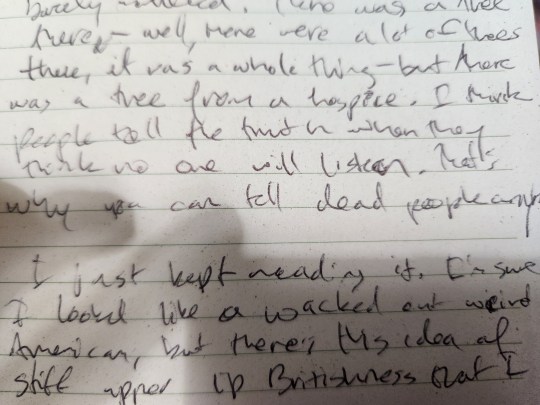 barely noticed. There was a tree
there — well, there were a lot of trees
there, it was a whole thing — but there
was a tree from a hospice. I think
people tell the truth when they
think no one will listen. That's
why you can tell dead people any
I just kept reading it. I'm sure
I looked like a wacked out weird
American, but there's this idea of
stiff upper lip Britishness that I